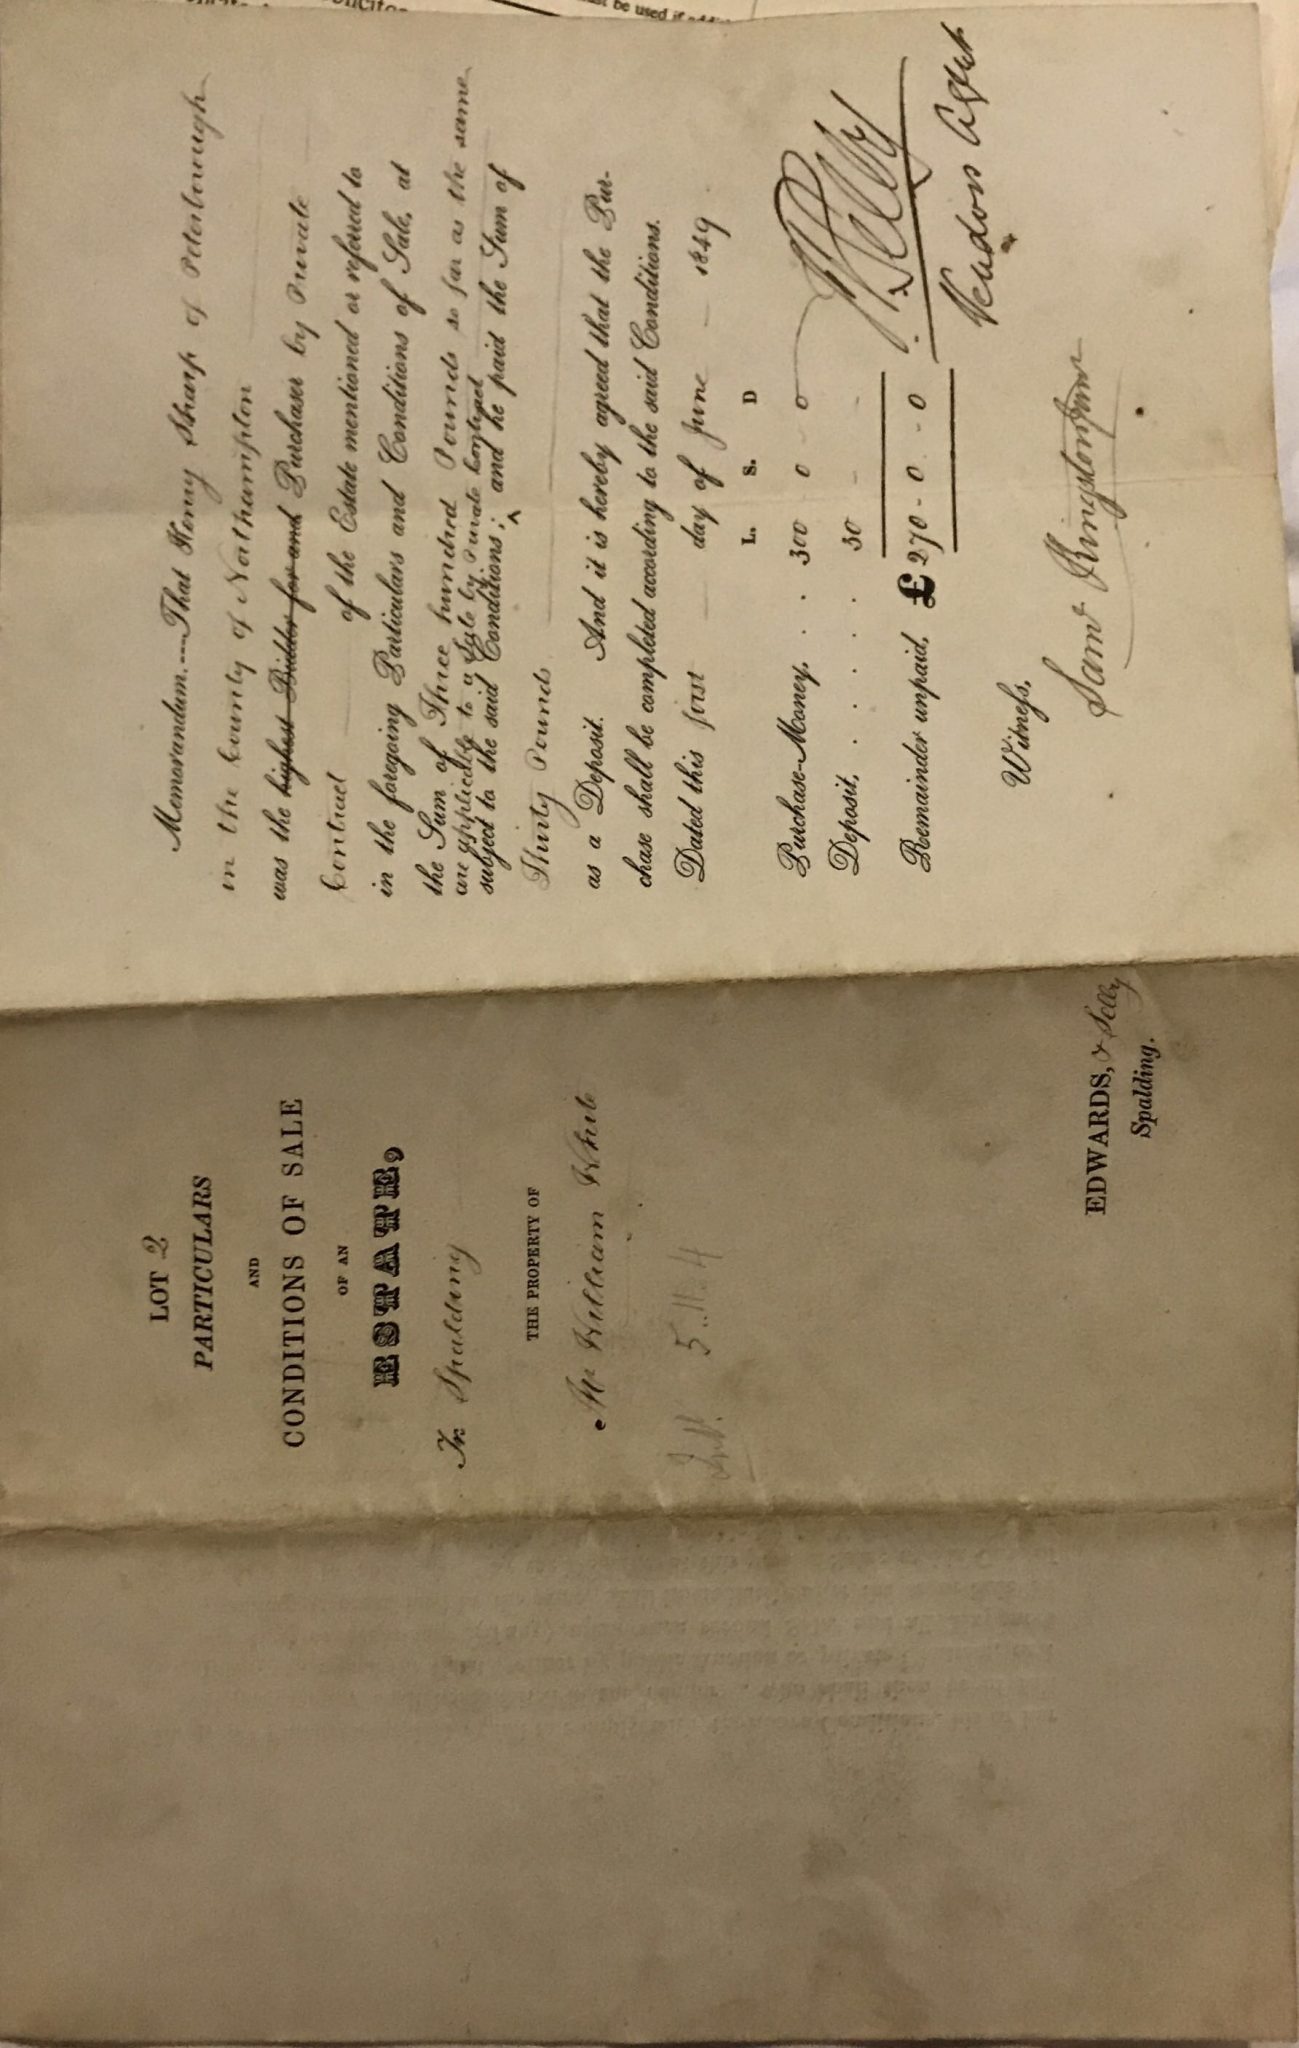 Memorandum.—That Henry Sharp of Peterborough
in the County of Northampton
was the highest Bidder for and Purchaser by Private
Contract of the Estate mentioned or referred to
in the foregoing Particulars and Conditions of Sale, at
the Sum of Three hundred Pounds so far as the same
are applicable to a Sale by Private Contract
subject to the said Conditions; and he paid the Sum of
Thirty Pounds
as a Deposit. And it is hereby agreed that the Pur-
chase shall be completed according to the said Conditions.
Dated this first day of June 1849
L. S. D
Purchase-Money, . . 300 0 - 0
Deposit, . . . . 30 - -
Remainder unpaid, £ 270 - 0 - 0
Selby
Vendors Agent
Witness,
Saml Kingston
LOT 2
PARTICULARS
AND
CONDITIONS OF SALE
OF AN
ESTATE,
In Spalding
THE PROPERTY OF
Mr William White
5..11..4
EDWARDS, & Selby
Spalding.
be used if